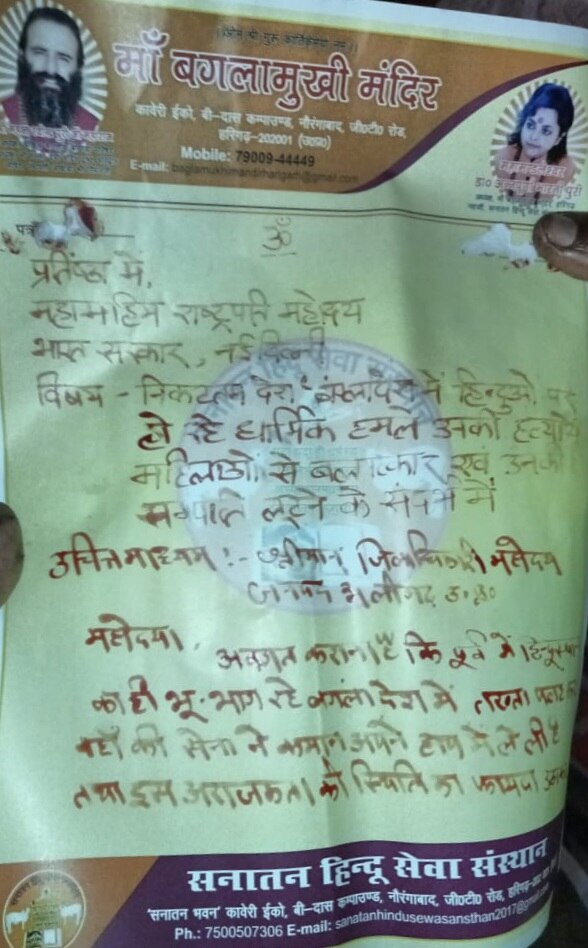 माँ बगलामुखी मंदिर
कावेरी ईको, बी-दास कम्पाउण्ड, नौरंगाबाद, जी०टी० रोड,
हरिगढ़-202001 (उ०प्र०)
Mobile: 79009-44449
E-mail: baglamukhimandirharigarh@gmail.com
ॐ
प्रतिष्ठा में,
महामहिम राष्ट्रपति महोदय
भारत सरकार, नई दिल्ली
विषय - निकटतम देश बंग्लादेश में हिन्दुओं पर
हो रहे धार्मिक हमले उनकी हत्यायें
महिलाओं से बलात्कार एवं उनकी
सम्पति लूटने के संदर्भ में
उचित माध्यम :- श्रीमान जिलाधिकारी महोदय
जनपद अलीगढ़ उ.प्र.
महोदय, अवगत कराना है कि पूर्व में
का ही भू-भाग रहे बंगला देश में तख्ता पलट
वहाँ की सेना ने कमान अपने हाथ में ले ली है
तथा इस अराजकता की स्थिति का फायदा
सनातन हिन्दू सेवा संस्थान
'सनातन भवन' कावेरी ईको, बी-दास कम्पाउण्ड, नौरंगाबाद, जी०टी० रोड,
Ph.: 7500507306 E-mail: sanatanhindusewasansthan2017@gmail.com